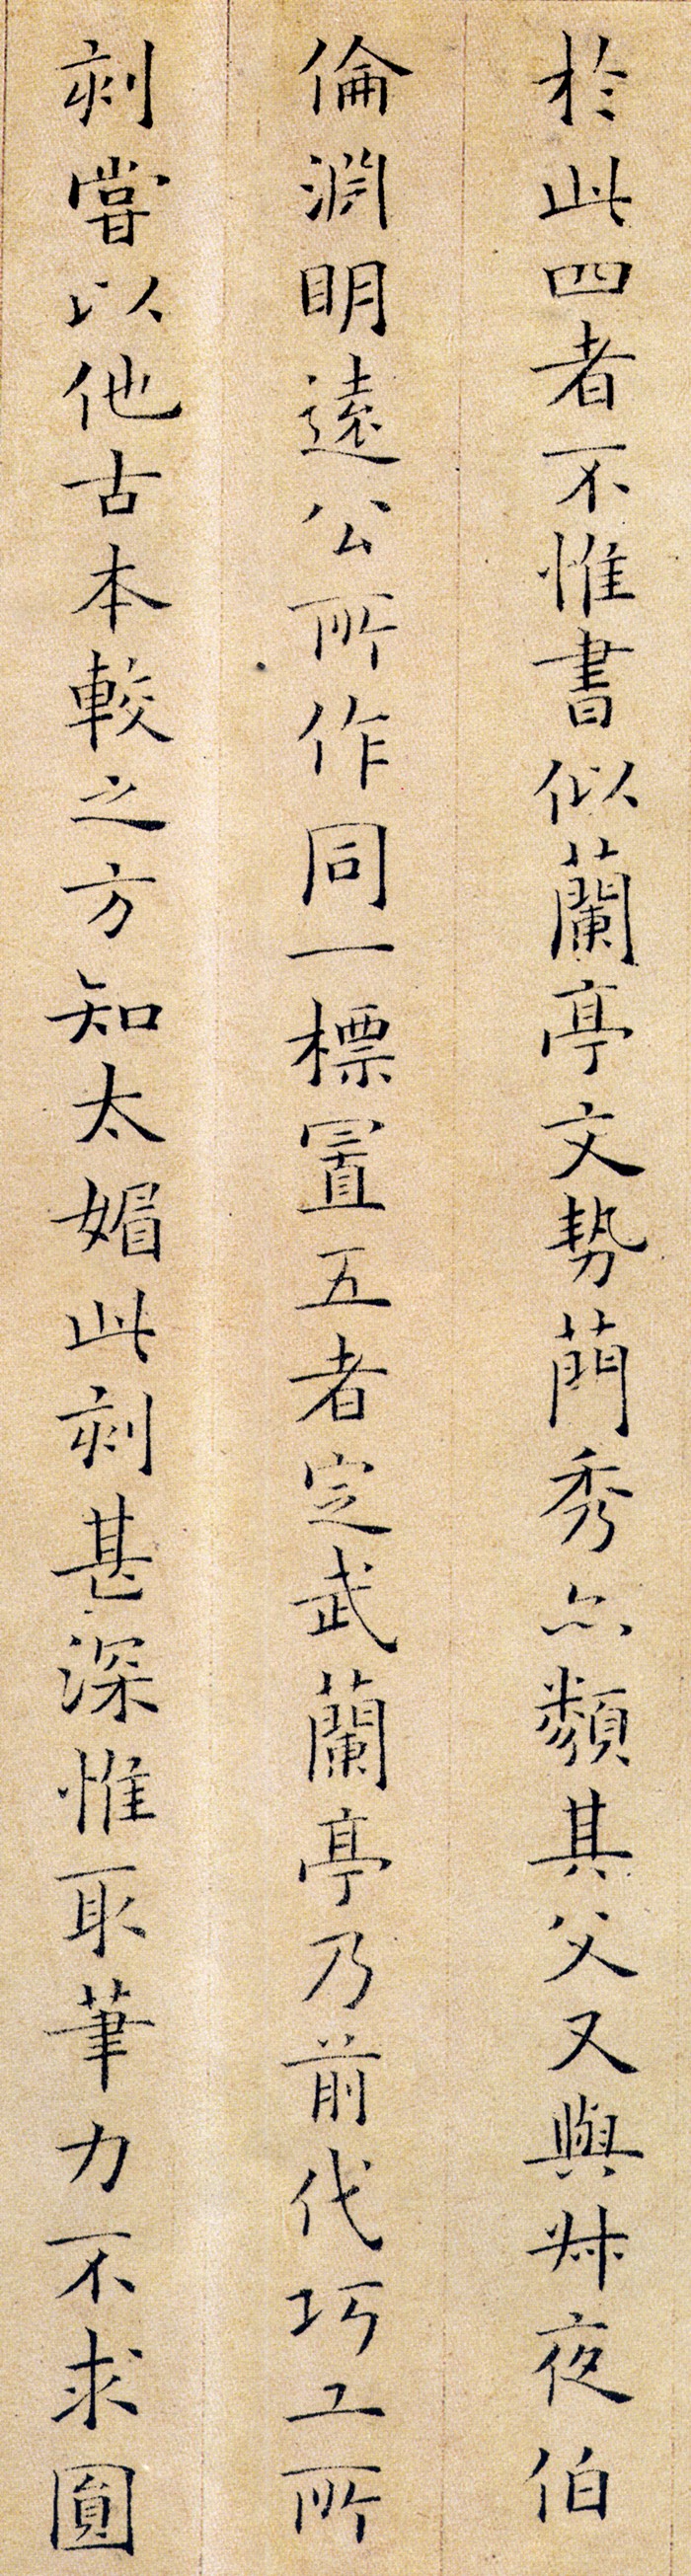 於此四者不惟書似蘭亭文勢蕳秀亦類其父又與叔夜伯
倫淵明遠公所作同一標置五者定武蘭亭乃前代巧工所
刻嘗以他古本較之方知太媚此刻甚深惟取筆力不求圓